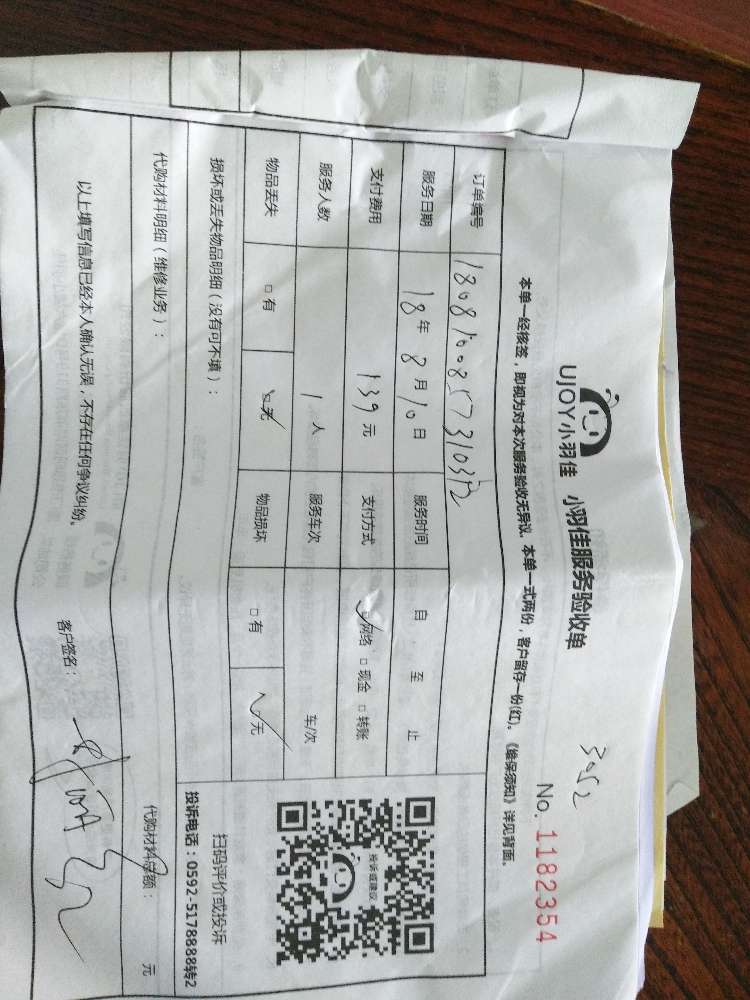 UJOY小羽佳 小羽佳服务验收单
No. 1182354
本单一经核签，即视为对本次服务验收无异议。本单一式两份，客户留存一份(红)。《维保须知》详见背面。
订单编号
服务日期 18年8月10日 服务时间 自 至 止
支付费用 139元 支付方式 ☑网络 □现金 □转账
服务人数 1人 服务车次 车/次
物品丢失 □有 ☑无 物品损坏 □有 ☑无
损坏或丢失物品明细（没有可不填）：
投诉或建议
扫码评价或投诉
投诉电话：0592-5178888转2
代购材料明细（维修业务）： 代购材料总额： 元
以上填写信息已经本人确认无误，不存在任何争议纠纷。 客户签名：